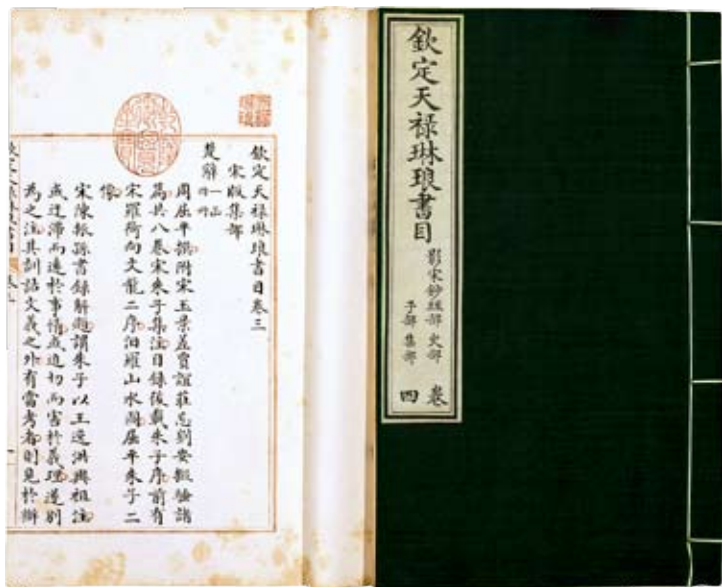 欽定天祿琳琅書目
影宋鈔經部 史部
子部 集部
卷四
欽定天祿琳琅書目卷三
宋版集部
楚辭一函
周屈平撰附宋玉景差賈誼莊忌劉安諸
篇共八卷宋朱子集注目錄後載朱子序前有
宋羅向文龍二序汨羅山水圖屈平朱子二
像
宋陳振孫書錄解題謂朱子以王逸洪興祖注
或迂滯而遠於事情或迫切而害於義理遂別
為之注其訓詁文義之外有當考者則見於辯